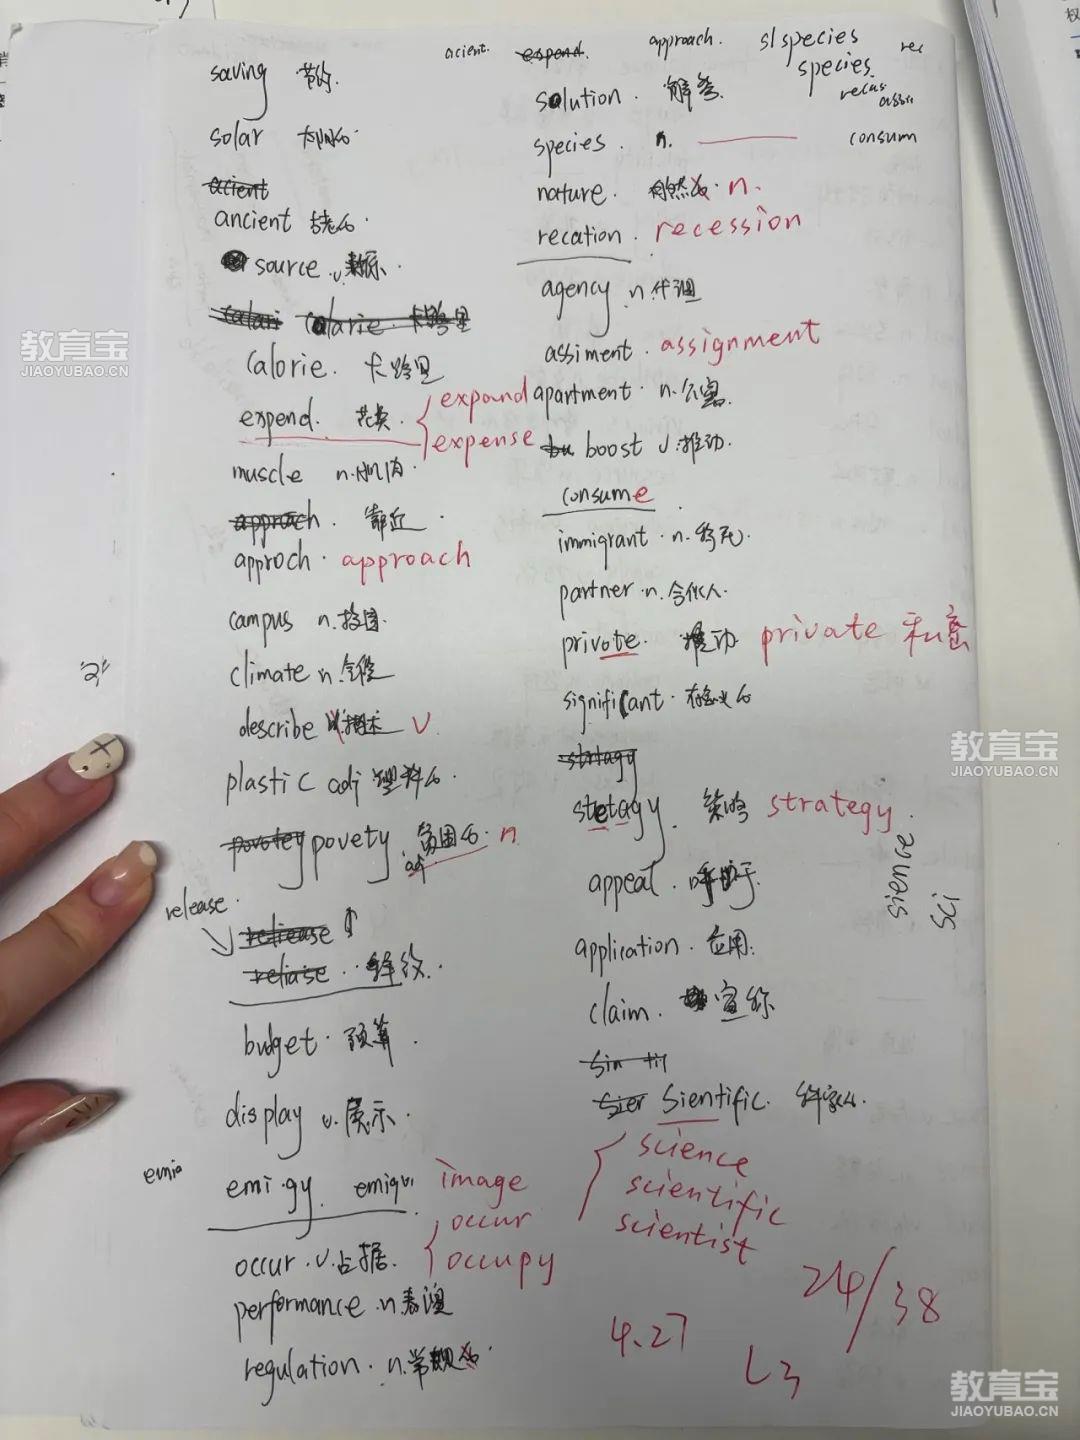 acient. expend. approach. slspecies rec
species.
recas
assi
consum
saving 节约.
solar 太阳的.
acient
ancient 古老的.
source v.来源.
calarie. 卡路里
Calorie. 卡路里
expend. 花费. expand
expense
muscle n.肌肉.
apprach. 靠近.
approch. approach
campus n.校园.
climate n.气候
describe 描述 v
plastic adj 塑料的.
povotey povety 贫困的. n
adj
release.
reliease
reliaise.. 释放.
budget. 预算.
display v.展示.
emia
emi.gy. emiqui image
occur
occur. v.占据. occupy
performance. n.表演
regulation. n.常规
solution. 解答.
species. n.
nature. 自然 n.
recation. recession
agency n.代理
assiment. assignment
apartment. n.公寓.
bu boost v.推动.
consume
immigrant. n.移民.
partner. n.合伙人.
privote. 推动 private 私密
significant. 有意义的
strtagy
stetagy. 策略 strategy.
sience
sci
appeal. 呼吁于.
application. 应用.
claim. 宣称
sin tif
sier Sientific. 科学的.
science
scientific
scientist
24/38
4.27
L3
"2"
教育宝
JIAOYUBAO.CN
教育宝
JIAOYUBAO.CN
教育宝
JIAOYUBAO.CN